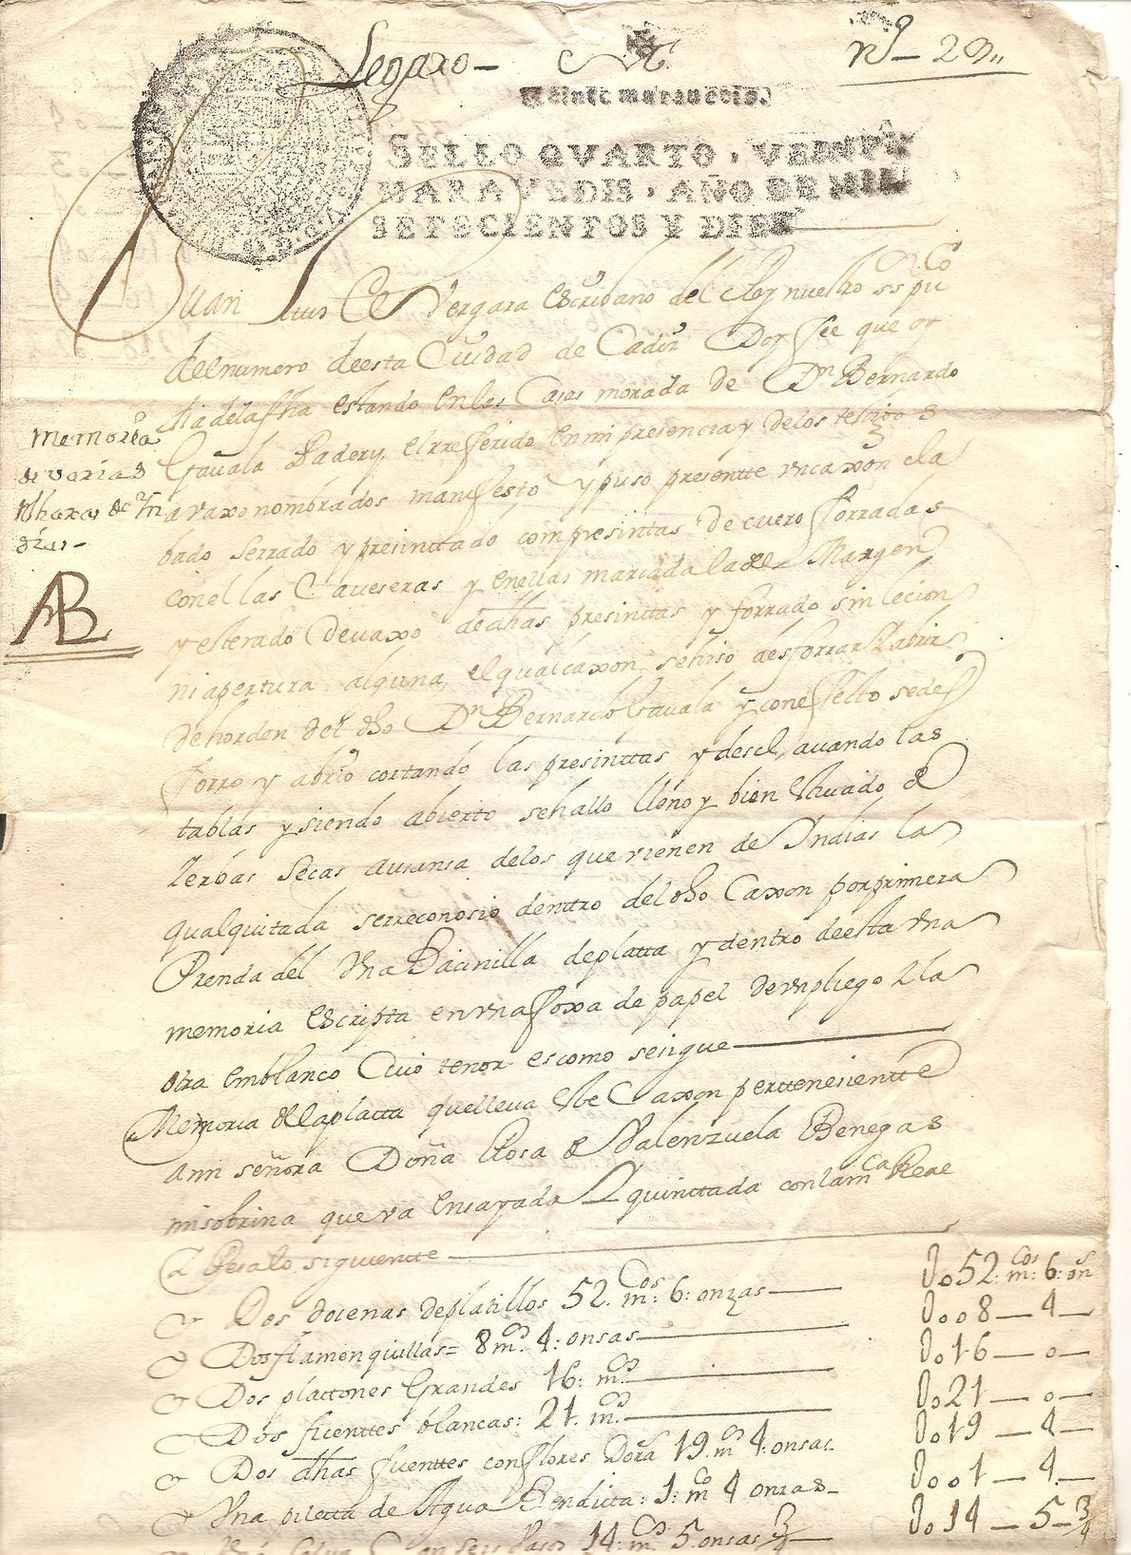 Legaxo – nº 23
Veinte maravedis.
SELLO QVARTO, VEINTE
MARAVEDIS, AÑO DE MIL
SETECIENTOS Y DIEZ
Juan de Vergara escribano del Rey nuestro sr puco
del numero deesta Ciudad de Cadiz Doy fee que oy
dia dela fha estando en las Casas morada de Dn Bernardo
Memoria
de varias
Alhaxas de Yn
dias –
AB
Gavala Padery, el rreferido en mi presencia y delos testigos
avaxo nombrados manifesto y puso presentte un caxon cla
bado serrado y presinttado com presintas de cuero forradas
con ellas Caveseras y en ellas marcada la del Margen
y esterado devaxo de dhas presinttas y forrado sin lecion
ni apertura alguna, el qual caxon se hiso desforrar y abrir
de horden del dho Dn Bernardo Gavala y con efecto se des
forro y abrio cortando las presinttas y desclavando las
tablas y siendo abierto se hallo lleno y bien de
Yerbas secas a usansa delos que vienen de Yndias la
qual quitada se rreconosio denttro del dho Caxon por primera
Prenda del Una Bacinilla de platta y dentro deesta una
memoria escripta en una foxa de papel de un pliego y la
otra en blanco Cuio tenor es como se sigue
Memoria de la platta que lleva este Caxon pertenesientte
a mi señora Doña Rosa de Valenzuela Benegas
mi sobrina que va ensayada y quinttada con la mca Real
y Pesa lo siguientte
Dos docenas de platillos 52. mcos: 6: onzas — Do52. mcos: 6: ons
Dos flamenquillas = 8 mcos. 4: onsas — Do o8 — 4 —
Dos plattones Grandes 16: mcos. — Do16 — o —
Dos fuenttes blancas: 21. mcos. — Do21 — o —
Dos dhas fuenttes con flores Dora 19. mcos 4: onsas — Do19 — 4 —
Una piletta de Agua Bendita: 1: mco 4 onzas — Do o1 — 4. —
Una Salva Con seis Vasos 14: mcos. 5. onsas 3/4 — Do14 — 5 — 3/4